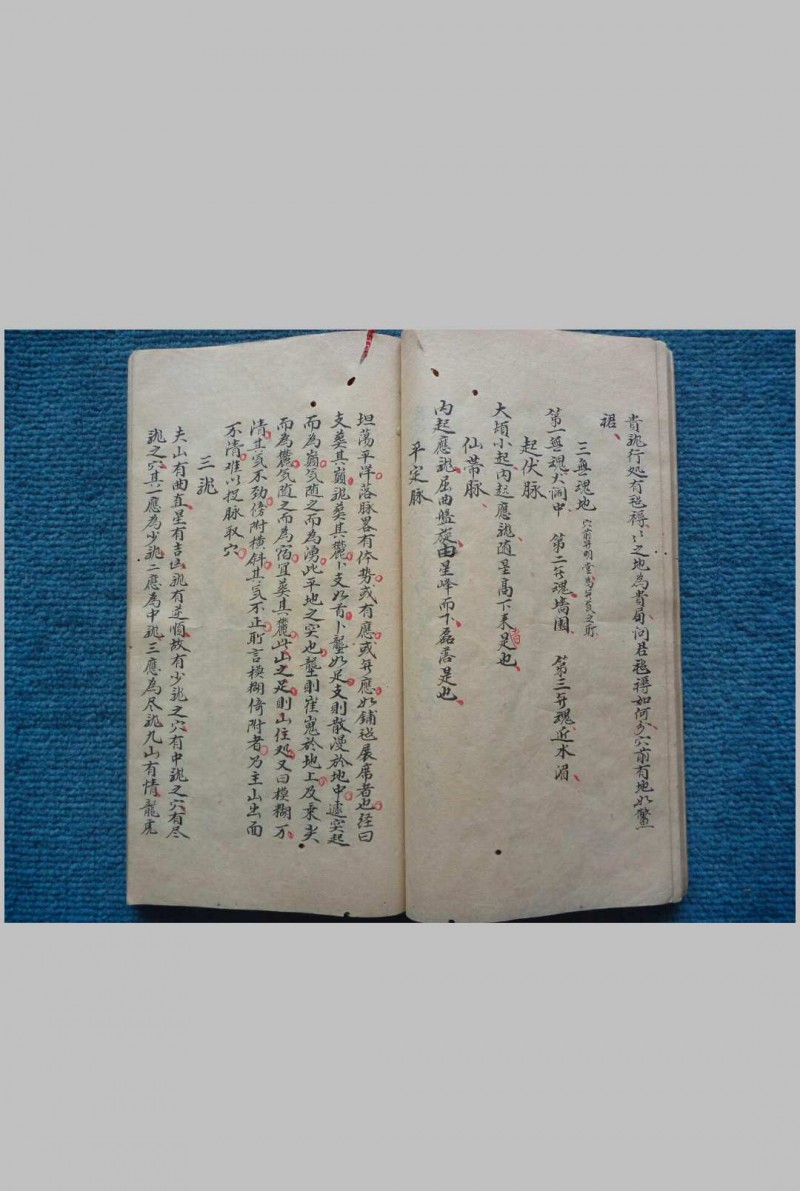 貴龍行処有毯褥〻之地為貴局问君毯褥如何分穴前有地如鱉
裙
三無魂地 穴前無明堂為無裒之所
第一無魂大洞中 第二無魂墻囤 第三無魂近水湄
起伏脉
大頓小起内起應龍随星高下来者是也
仙帶脉
内起應龍屈曲盤旋由星峰而下磊落是也
平定脉
坦荡平洋落脉畧有体势或有應或無應如铺毯展席者也經曰
支葬其巔壠葬其麓卜支如首卜壟如足支則散漫於地中遽突起
而為巔気随之而為湧此平地之突也壟則崔嵬於地上及来尖
而為麓気随之而為宿宜葬其麓此山之足則山住処又曰模糊不
清其気不劲傍附横斜其気不正所言模糊倚附者乃主山出面
不清难以捉脉取穴
三龍
夫山有曲直星有吉凶龍有逆順故有少龍之穴有中龍之穴有尽
龍之穴其一應為少龍二應為中龍三應為尽龍凡山有情龍虎